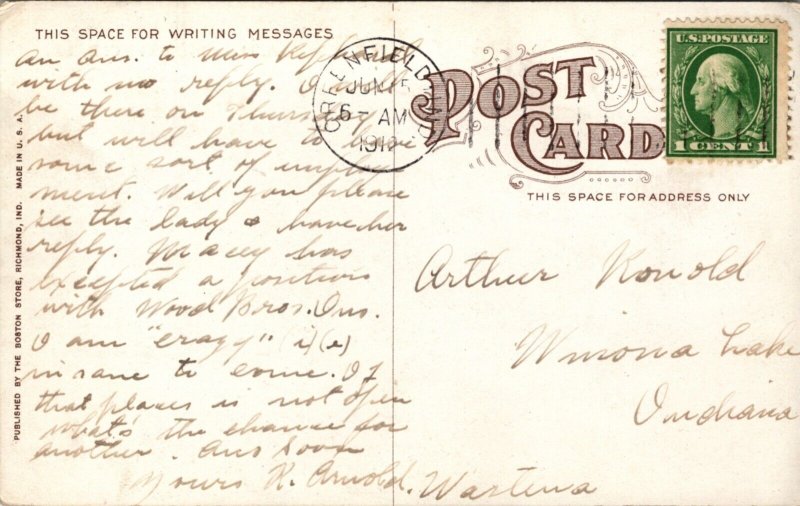 THIS SPACE FOR WRITING MESSAGES
an ans. to Miss
with no reply. I will
be there on Thursday
but will have to have
some sort of employ
ment. Will you please
see the lady & have her
reply. Macey has
excepted a position
with Wood Bros. Ins.
I am "crazy" (i)(e)
insane to come. If
that places is not open
what's the chance for
another. Ans soon
Yours R. Arnold.
PUBLISHED BY THE BOSTON STORE, RICHMOND, IND. MADE IN U. S. A.
GREENFIELD
JUN 5
6 - AM
191
POST
CARD
U.S. POSTAGE
1 CENT 1
THIS SPACE FOR ADDRESS ONLY
Arthur Ronold
Winona Lake
Indiana
Wartena